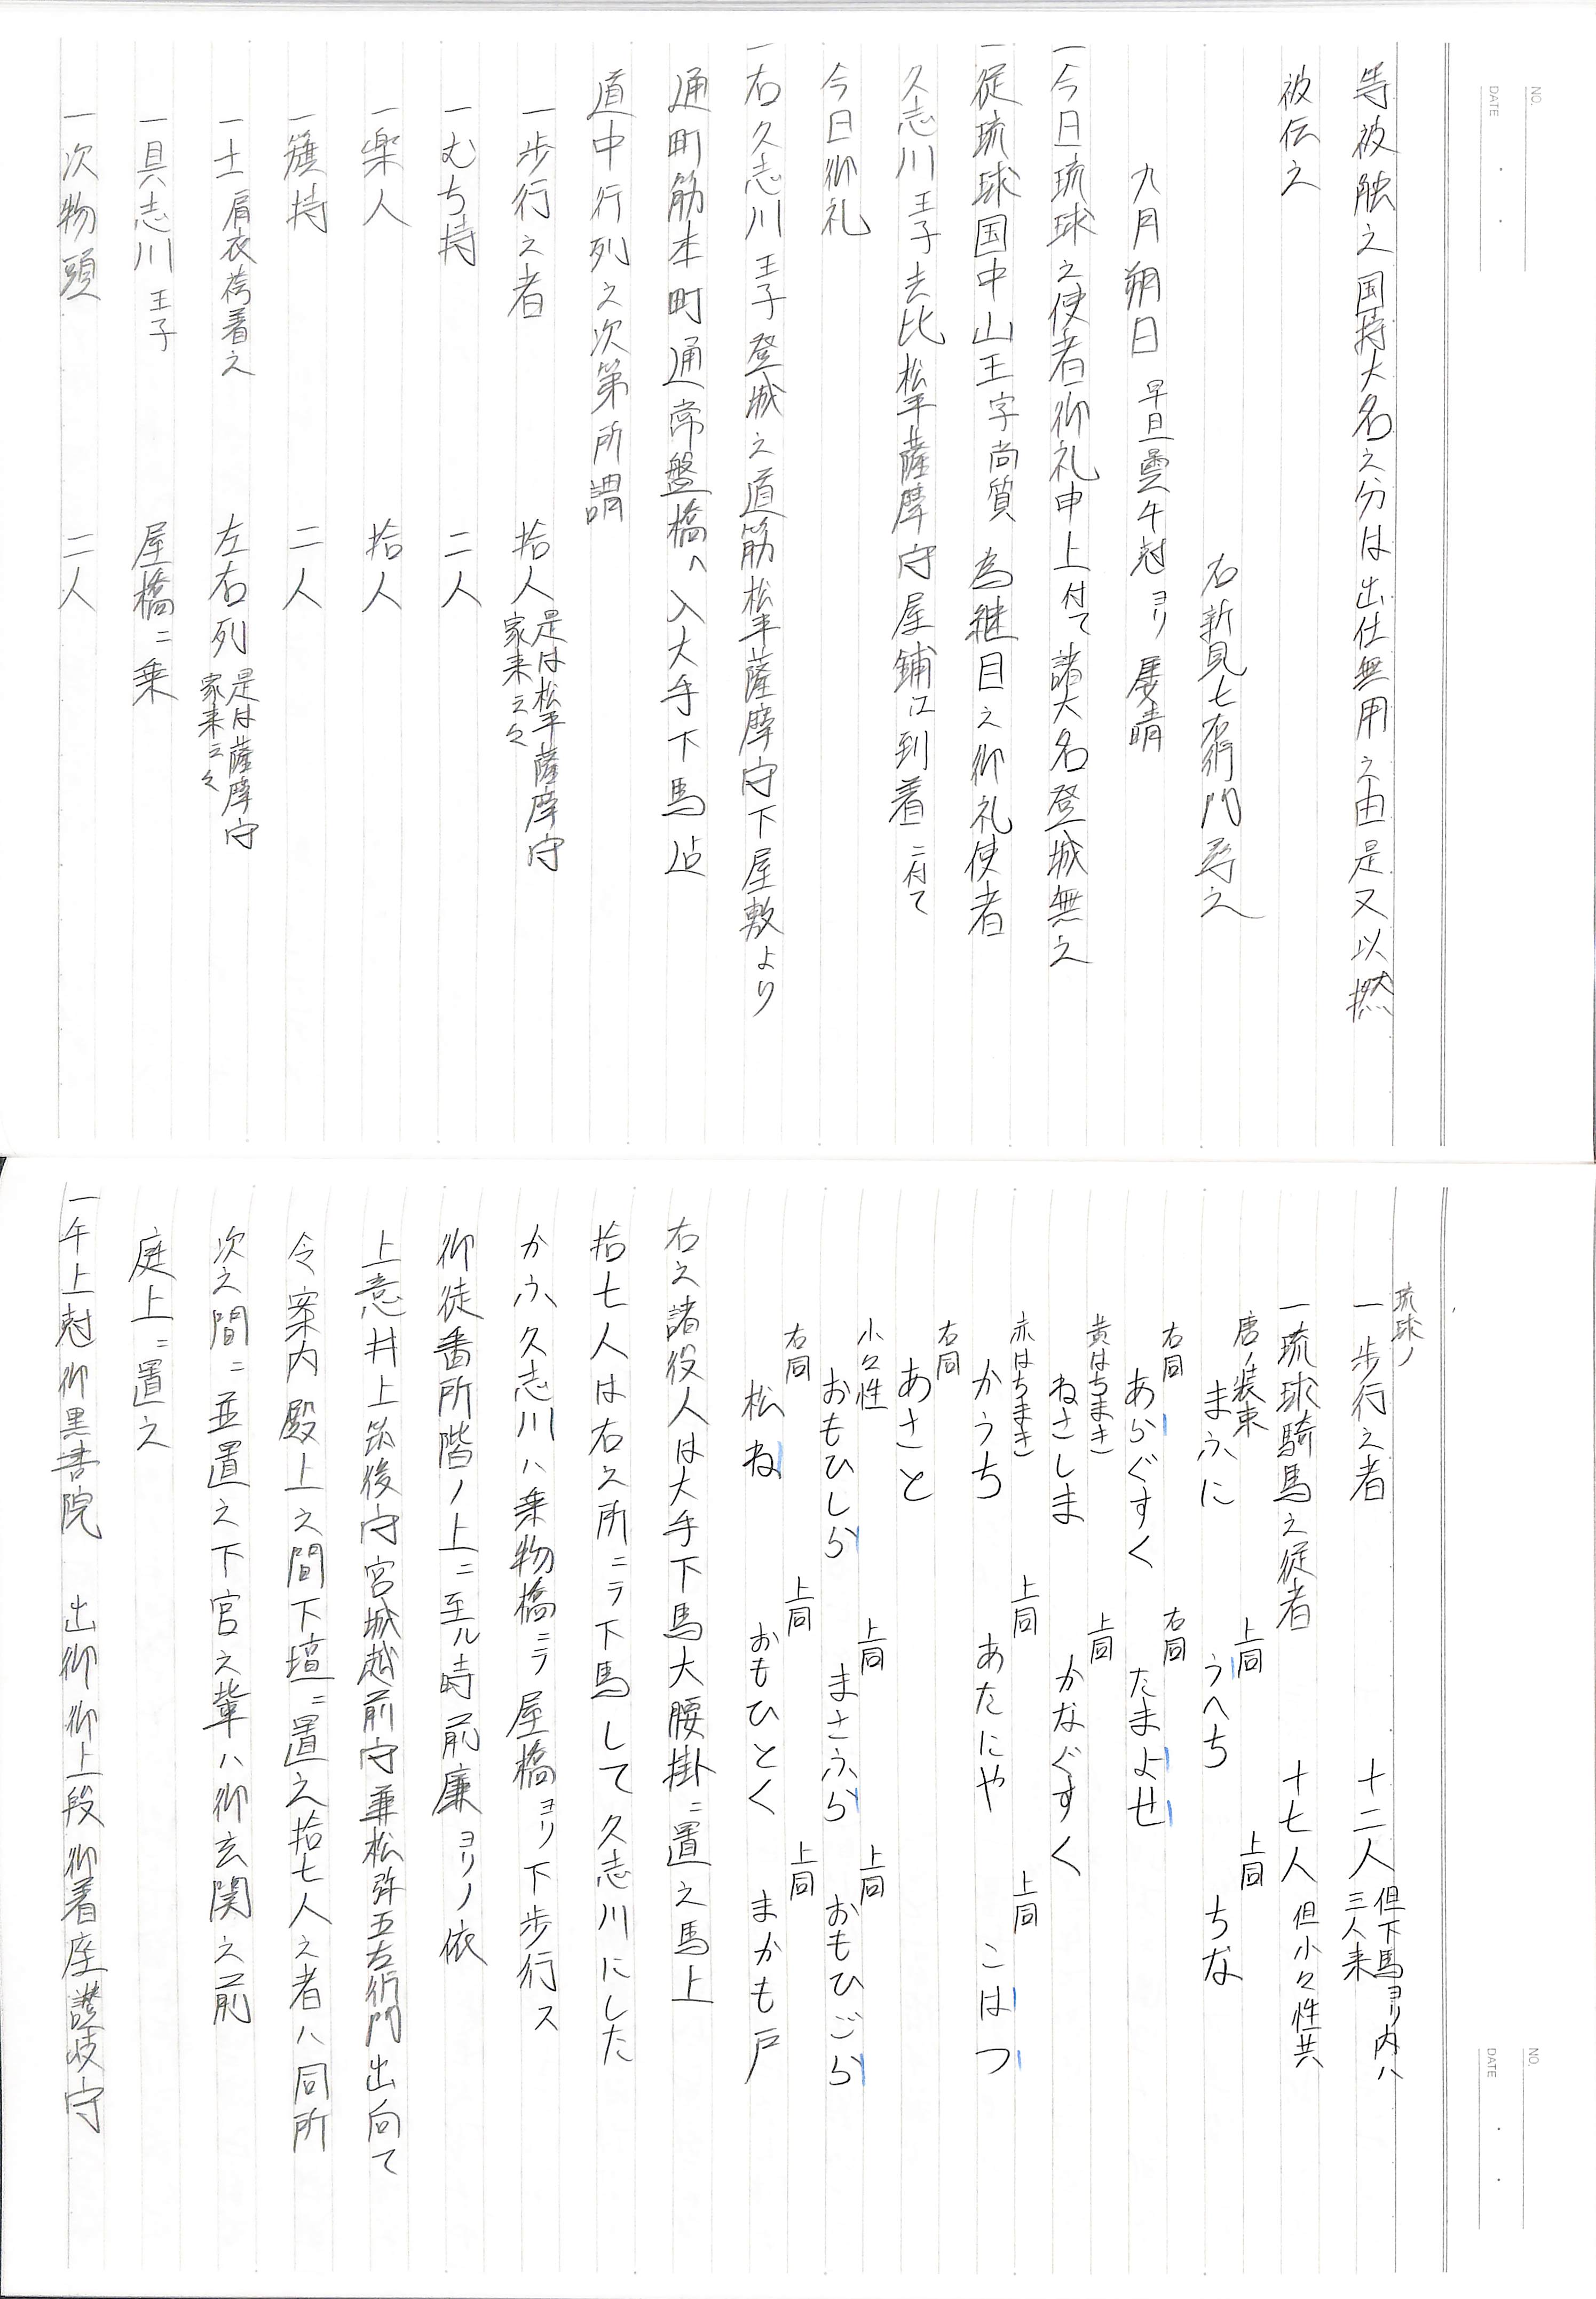 NO.
DATE
等被触之国持大名之分は出仕無用之由是又以撚
被伝之
右新見七右衛門尋之
九月朔日 早旦曇午尅ヨリ屡晴
一今日琉球之使者御礼申上付て諸大名登城無之
一従琉球国中山王字尚質為継目之御礼使者
久志川王子去比松平薩摩守屋鋪江到着ニ付て
今日御礼
一右久志川王子登城之道筋松平薩摩守下屋敷より
通町筋本町通常盤橋ヘ入大手下馬迠
道中行列之次第所謂
一歩行之者 拾人 是は松平薩摩守家来之々
一むち持 二人
一楽人 拾人
一籏持 二人
一士 肩衣袴着之 左右列 是は薩摩守家来之々
一具志川王子 屋橋ニ乗
一次物頭 二人
NO.
DATE
琉球ノ
一歩行之者 十二人 但下馬ヨリ内ハ三人来
一琉球騎馬之従者 十七人 但小々性共
唐ノ装束 まふに 上同 うへち 上同 ちな
右同 あらぐすく 右同 たまよせ
黄はちまき ねさしま 上同 かなぐすく
赤はちまき かうち 上同 あたにや 上同 こはつ
右同 あさと
小々性 おもひしら 上同 まさふら 上同 おもひごら
右同 松ね 上同 おもひとく 上同 まかも戸
右之諸役人は大手下馬大腰掛ニ置之馬上
拾七人は右之所ニテ下馬して久志川にした
かふ久志川ハ乗物橋ニテ屋橋ヨリ下歩行ス
御徒番所階ノ上ニ至ル時前廉ヨリノ依
上意井上筑後守宮城越前守兼松弥五左衛門出向て
令案内殿上之間下壇ニ置之拾七人之者ハ同所
次之間ニ並置之下官之輩ハ御玄関之前
庭上ニ置之
一午上尅御黒書院 出御御上段御着座讃岐守